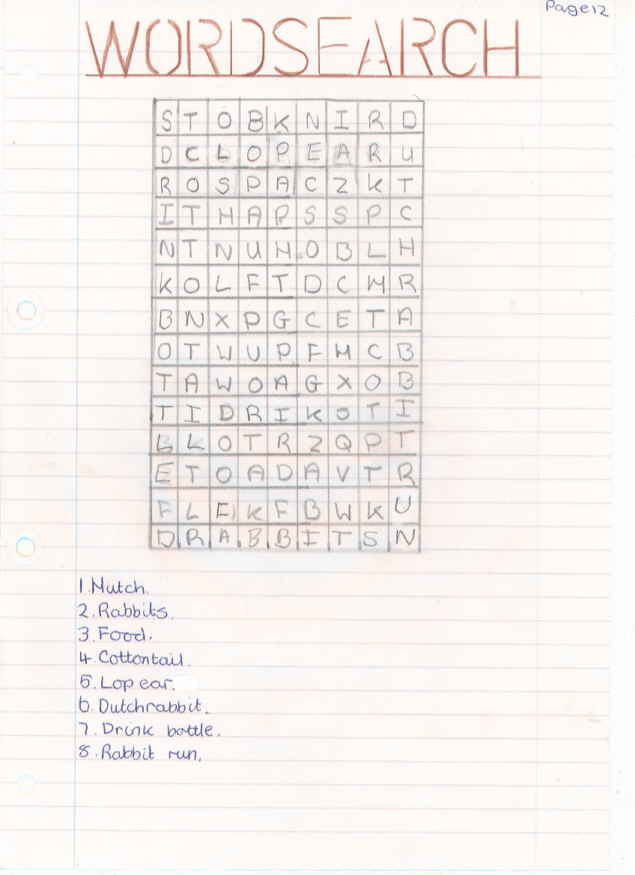 Page 12
WORDSEARCH
S T O B K N I R D
D C L O P E A R U
R O S P A C Z K T
I T H A P S S P C
N T N U H O B L H
K O L F T D C H R
B N X P G C E T A
O T W U P F H C B
T A W O A G X O B
T I D R I K O T I
L L O T R Z Q P T
E T O A D A V T R
F L E K F B W K U
D R A B B I T S N
1. Hutch.
2. Rabbits.
3. Food.
4. Cottontail.
5. Lop ear.
6. Dutchrabbit.
7. Drink bottle.
8. Rabbit run.